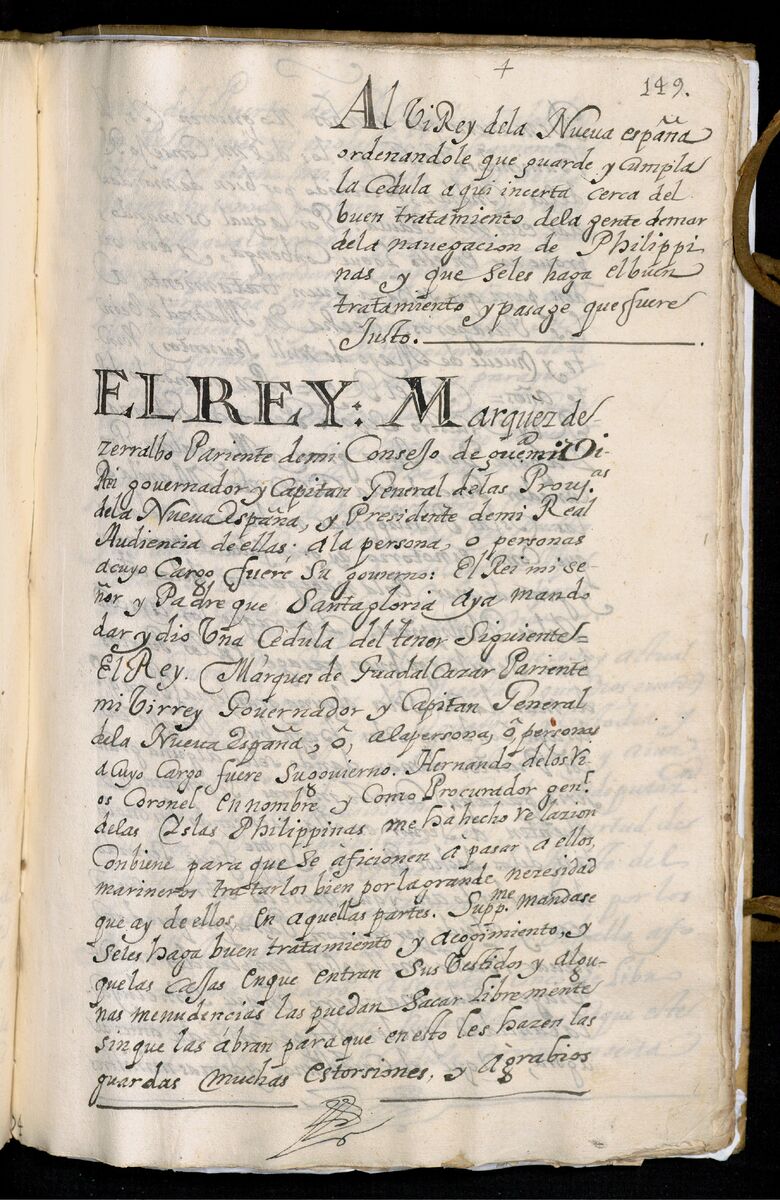 +
149.
Al ViRey dela Nueva españa
ordenandole que guarde y Cumpla
la Cedula aqui incerta cerca del
buen tratamiento dela gente demar
dela navegacion de Philippi
nas y que seles haga elbuen
tratamiento ypasage quefuere
Justo.
EL REY: Marquez de
zerralbo Pariente demi Consejo de guerra mi Vi-
Rei governador y Capitan General delas Prouj.as
dela Nueva España, y Presidente demi Real
Audiencia de ellas: ala persona, o personas
acuyo Cargo fuere su governo: El Rei mi se-
ñor y Padre que Santagloria aya mando
dar y dio Vna Cedula del tenor Siguiente=
El Rey. Marques de GuadalCazar Pariente
mi Virrey Governador y Capitan General
dela Nueva España, ô, alapersona, ô, personas
acuyo Cargo fuere Sugovierno. Hernando delos Ri-
os Coronel ennombre y Como Procurador gen.l
delas Yslas Philippinas me hà hecho relazion
Conbiene para que se àficionen à pasar a ellos,
marineros tratarlos bien por lagrande nezesidad
que ay de ellos, en aquellas partes. Supp.me mandase
seles haga buen tratamiento y acogimiento, y
quelas Cajas enque entran sus Vestidos y algu-
nas menudencias las puedan Sacar Libremente
sinque las àbran paraque en esto les hazen las
guardas muchas estorsiones, y agrabios